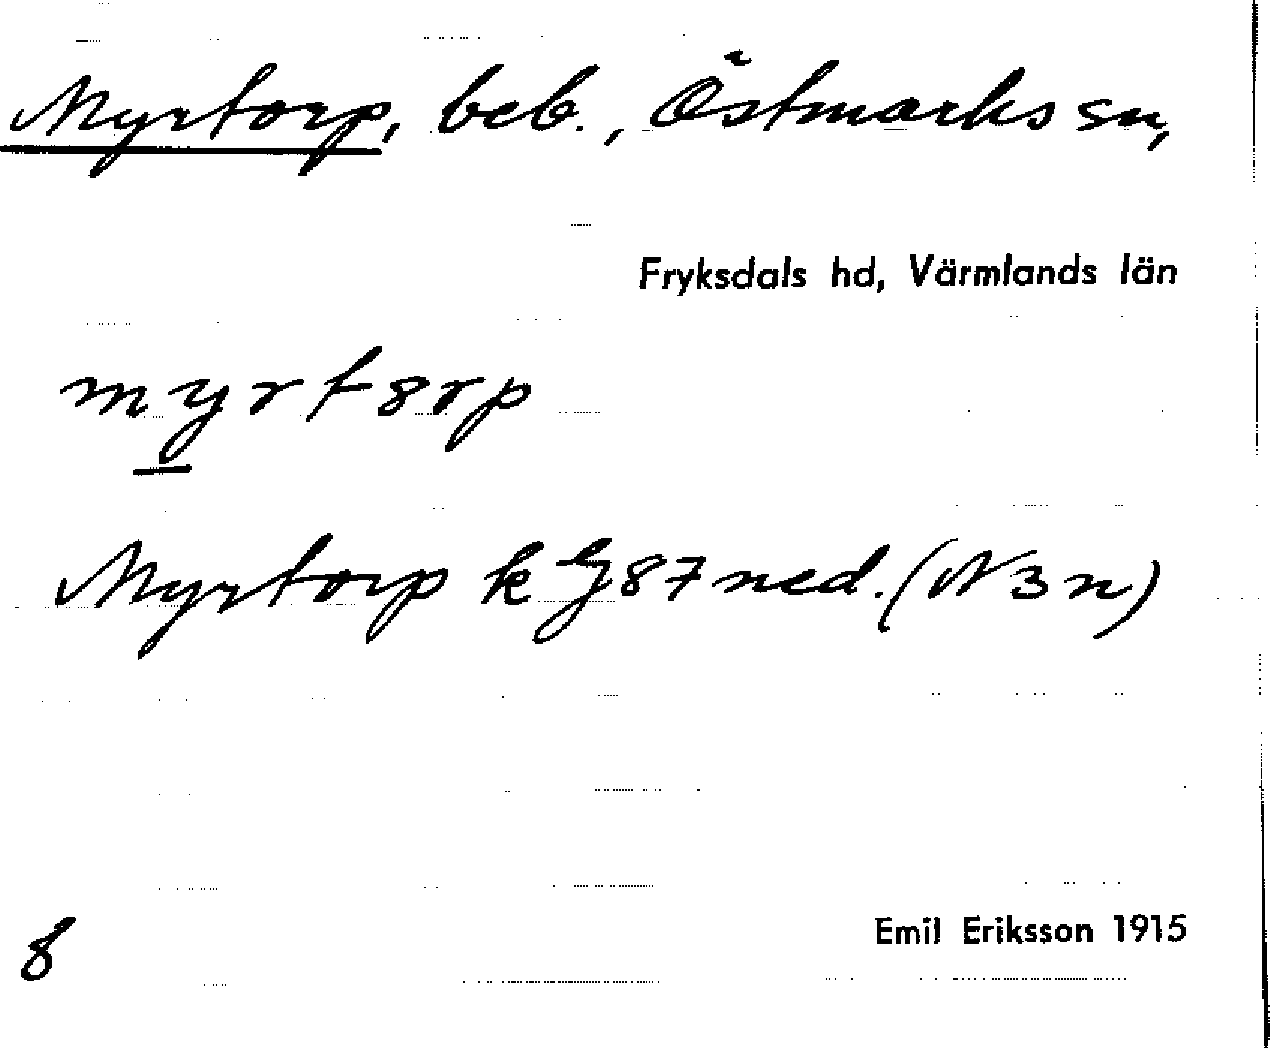 Myrtorp, beb., Östmarks sn,
Fryksdals hd, Värmlands län
myrt8rp
Myrtorp k G 87 ned. (N 3 n)
Emil Eriksson 1915
8